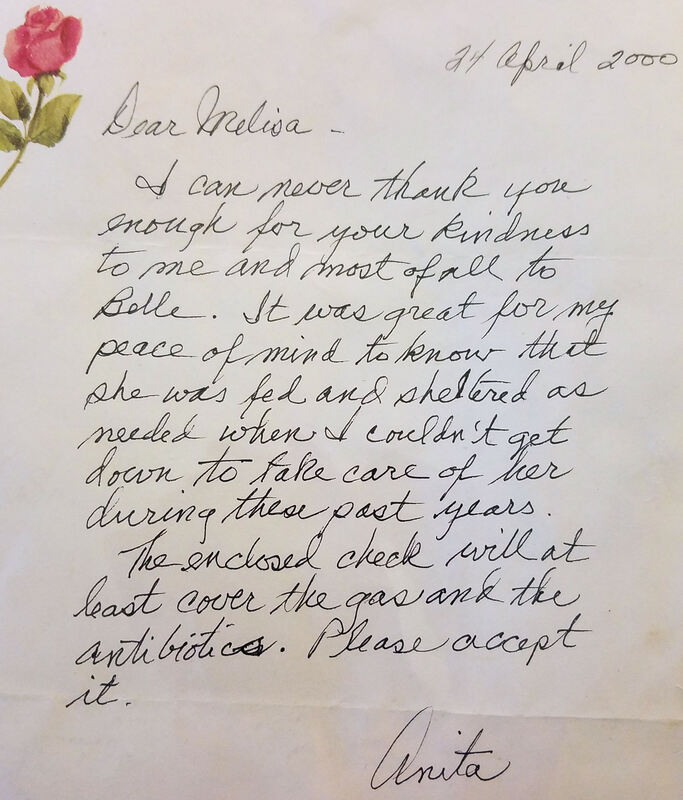 24 April 2000
Dear Melisa -
I can never thank you
enough for your kindness
to me and most of all to
Belle. It was great for my
peace of mind to know that
she was fed and sheltered as
needed when I couldn't get
down to take care of her
during these past years.
The enclosed check will at
least cover the gas and the
antibiotics. Please accept
it.
Anita